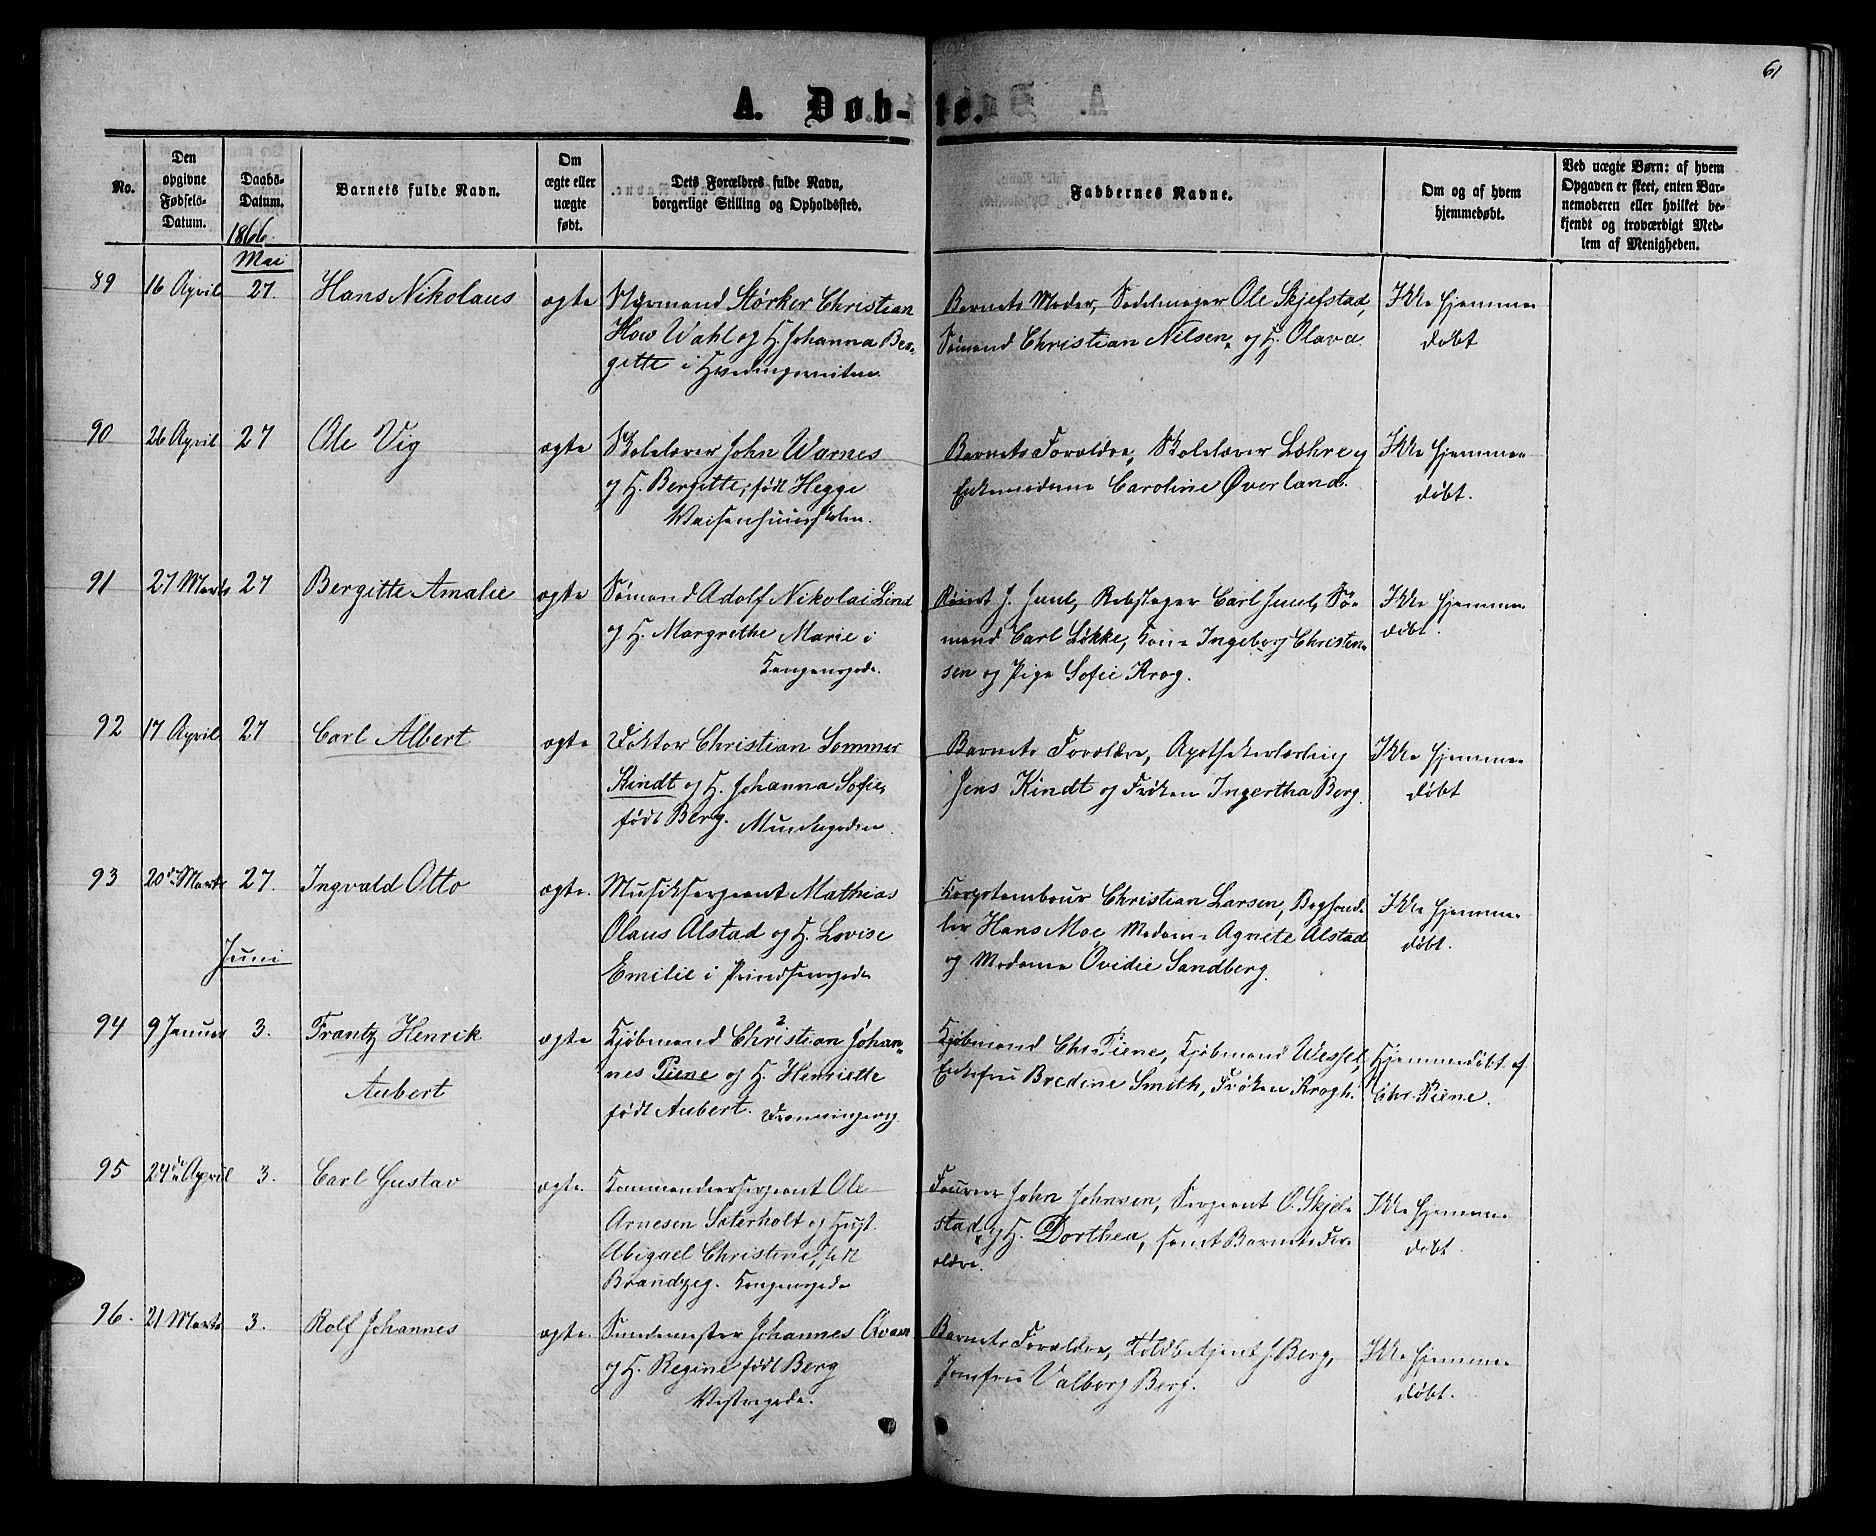 61
A. Døb-te.
No.
Den opgivne Fødsels-Datum.
Daabs-Datum.
Barnets fulde Navn.
Om ægte eller uægte født.
Dets Forældres fulde Navn, borgerlige Stilling og Opholdssted.
Faddernes Navne.
Om og af hvem hjemmedøbt.
Ved uægte Børn: af hvem Opgaven er skeet, enten Barnemoderen eller hvilket bekjendt og troværdigt Medlem af Menigheden.
1866
Mai
89 16 April 27. Hans Nikolaus ægte Styrmand Størker Christian
How Wahl og H. Johanna Ber-
gitte i
Barnets Moder, Sadelmager Ole Skjefstad,
Sømand Christian Nilsen og H. Olava
Ikke hjemme
døbt
90 26 April 27 Ole Vig ægte Skolelærer John Warnes
og H. Bergitte, født Hegge
Waisenhuusskolen.
Barnets Forældre, Skolelærer Løhre og
Enkemadame Caroline Øverland.
Ikke hjemme
døbt.
91 27 Marts 27 Bergitte Amalie ægte Sømand Adolf Nikolai Lind
og H. Margrethe Marie i
Kongensgade.
J. Juul, Rebslager Carl Juul, Sø-
mand Carl Løkke, Kone Ingeborg Christen-
sen og Pige Sofie Krog.
Ikke hjemme
døbt.
92 17 April 27 Carl Albert ægte Doktor Christian Sommer
Kindt og H. Johanna Sofie,
født Berg. Munkegaden.
Barnets Forældre, Apothekerlærling
Jens Kindt og Frøken Ingertha Berg.
Ikke hjemme
døbt
93 20de Marts 27. Ingvald Otto ægte. Musiksergeant Mathias
Olaus Alstad og H. Lovise
Emilie i Prindsensgade
Korpstambour Christian Larsen, Boghand-
ler Hans Moe, Madame Agnete Alstad
og Madame Ovidie Sandberg.
Ikke hjemme
døbt.
Juni
94 9 Januar 3. Frantz Henrik
Aubert
ægte Kjøbmand Christian Johan-
nes Piene og H. Henriette
født Aubert.
Kjøbmand Chr. Piene, Kjøbmand Wessel,
Enkefru Bredine Smith, Frøken Krogh.
Hjemmedøbt af
Chr. Piene.
95 24de April 3. Carl Gustav ægte. Kommandeersergeant Ole
Arnesen Sæterholt og Hust.
Abigael Christine, født
Brandtzeg. Kongensgade
Fourer John Johnsen, Sergeant O. Skjel-
stad og H. Dorthea, samt Barnets For-
ældre.
Ikke hjemme
døbt.
96. 21 Marts 3. Rolf Johannes ægte. Smedemester Johannes Qvam
og H. Regine født Berg
Vestergade.
Barnets Forældre, Toldbetjent J. Berg,
Jomfru Valborg Berg.
Ikke hjemme
døbt.